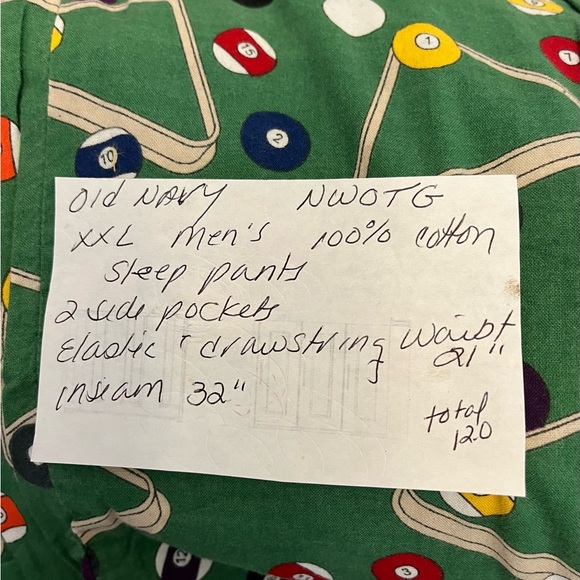 15
1
7
10
2
Old Navy NWOTG
XXL men's 100% cotton
sleep pants
2 side pockets
Elastic drawstring waist
21"
inseam 32"
total
120
12
3